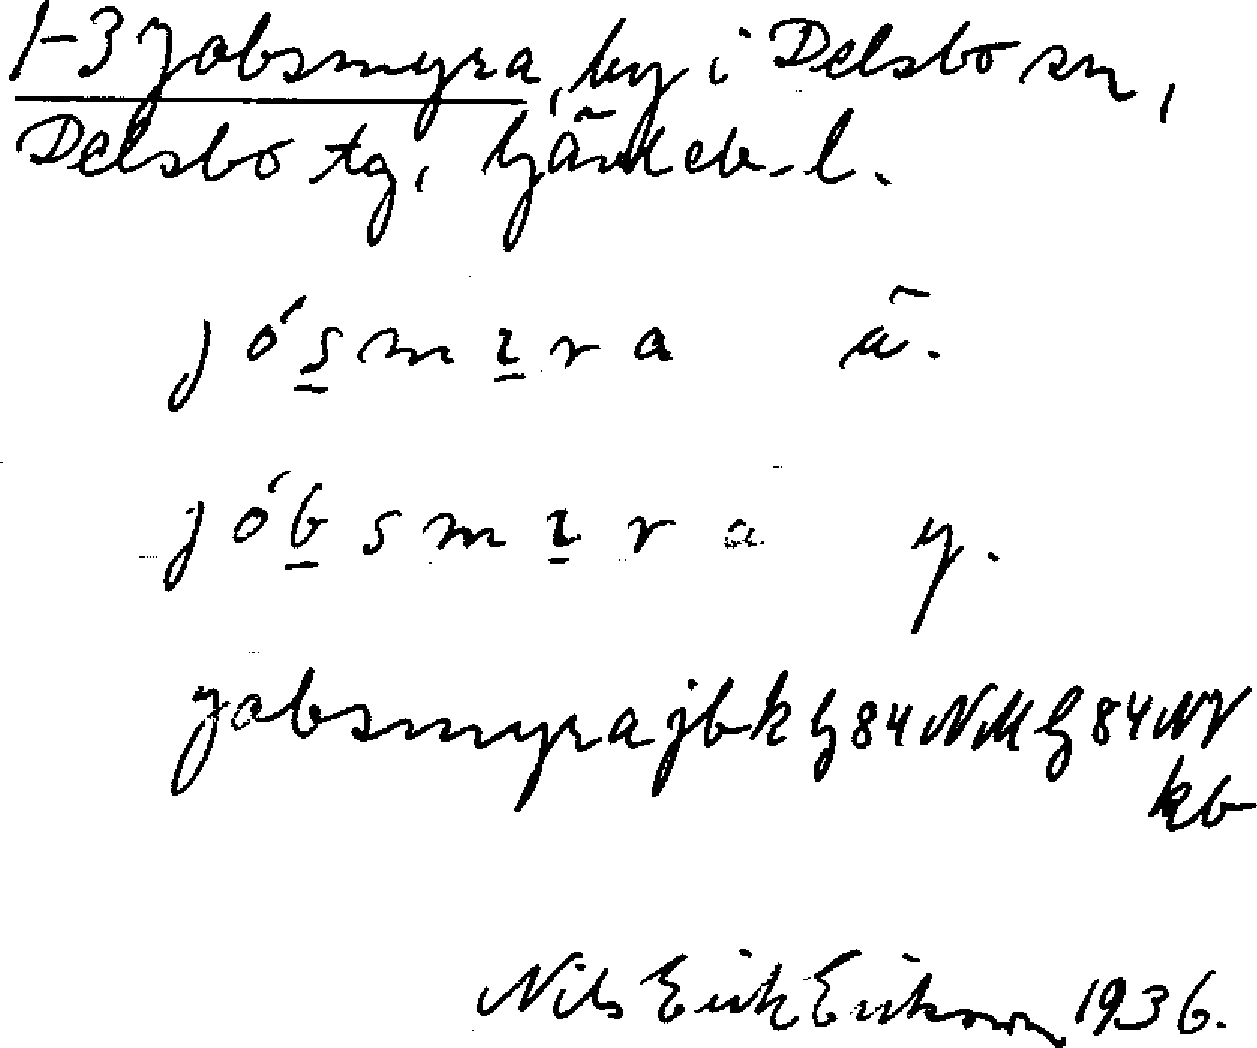 1-3 Jobsmyra, by i Delsbo sn,
Delsbo tg, Gävleb. l.
jósmɪra ä.
jóbsmɪra y.
Jobsmyra jbk h 84 NM h 84 NV
kb
Nils Erik Erikson 1936.